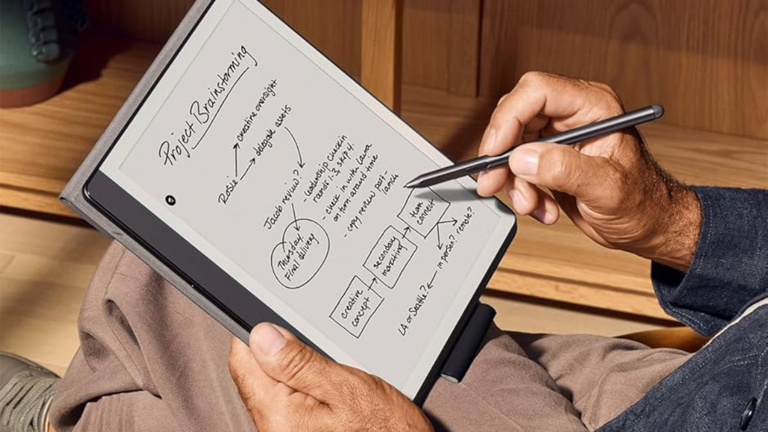 Project Brainstorming
Rosie
creative oversight
delegate assets
Jacob review?
- leadership check in
rounds 1-3 sept 4.
- check in with Laura
on turn around time
- copy review post-
launch
Thursday
Final delivery
creative
concept
secondary
marketing
team
connect
in person? remote?
LA or Seattle?